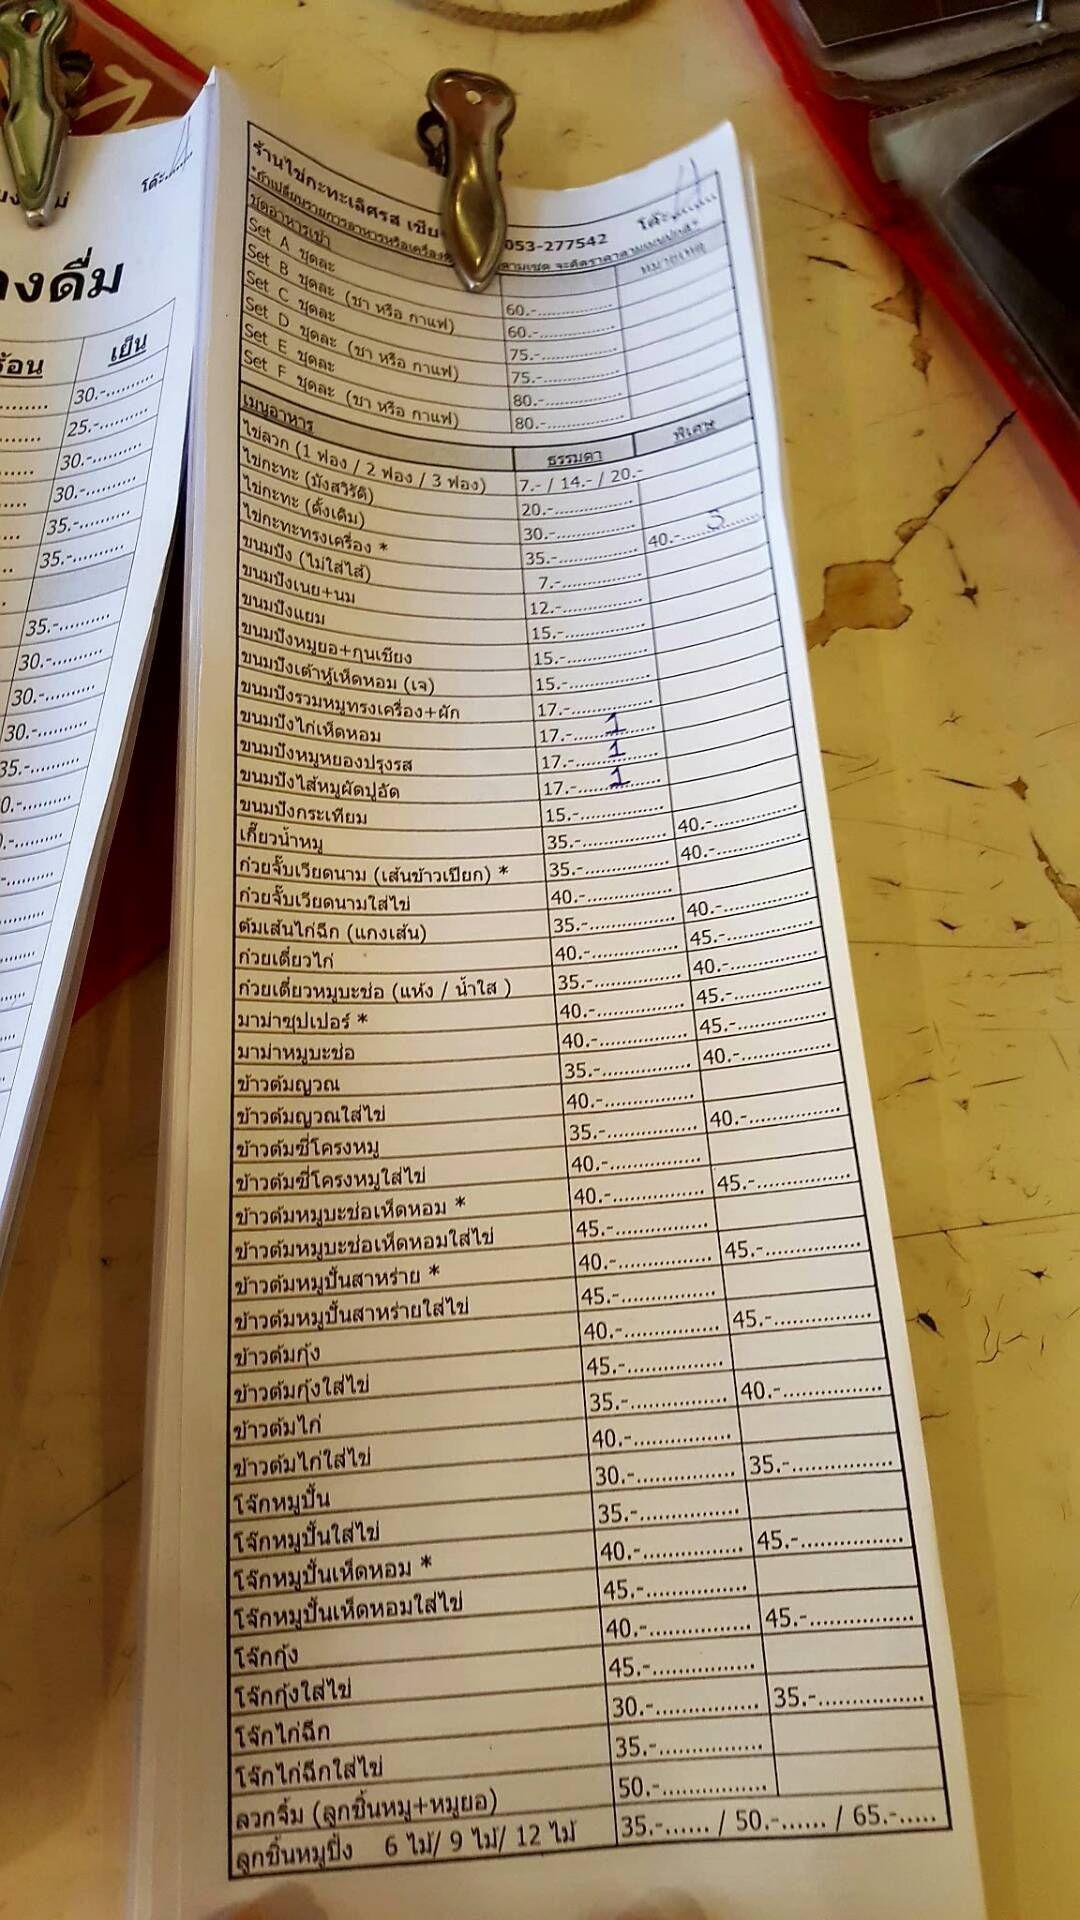 โต๊ะ......
งดื่ม
ร้อน เย็น
30.-..........
25.-..........
30.-..........
30.-..........
35.-..........
35.-..........
35.-..........
30.-..........
30.-..........
30.-..........
35.-..........
ร้านไข่กะทะเลิศรส เชีย 053-277542 โต๊ะ......
ชุดอาหารเช้า หมายเหตุ
Set A ชุดละ 60.-..........
Set B ชุดละ (ชา หรือ กาแฟ) 60.-..........
Set C ชุดละ 75.-..........
Set D ชุดละ (ชา หรือ กาแฟ) 75.-..........
Set E ชุดละ 80.-..........
Set F ชุดละ (ชา หรือ กาแฟ) 80.-..........
เมนูอาหาร ธรรมดา พิเศษ
ไข่ลวก (1 ฟอง / 2 ฟอง / 3 ฟอง) 7.- / 14.- / 20.-
ไข่กะทะ (มังสวิรัติ) 20.-..........
ไข่กะทะ (ดั้งเดิม) 30.-..........
ไข่กะทะทรงเครื่อง * 35.-.......... 40.-....3......
ขนมปัง (ไม่ใส่ไส้) 7.-..........
ขนมปังเนย+นม 12.-..........
ขนมปังแยม 15.-..........
ขนมปังหมูยอ+กุนเชียง 15.-..........
ขนมปังเต้าหู้เห็ดหอม (เจ) 15.-..........
ขนมปังรวมหมูทรงเครื่อง+ผัก 17.-..........
ขนมปังไก่เห็ดหอม 17.-....1......
ขนมปังหมูหยองปรุงรส 17.-....1......
ขนมปังไส้หมูผัดปูอัด 17.-....1......
ขนมปังกระเทียม 15.-..........
เกี๊ยวน้ำหมู 35.-.......... 40.-..........
ก๋วยจั๊บเวียดนาม (เส้นข้าวเปียก) * 35.-.......... 40.-..........
ก๋วยจั๊บเวียดนามใส่ไข่ 40.-..........
ต้มเส้นไก่ฉีก (แกงเส้น) 35.-.......... 40.-..........
ก๋วยเตี๋ยวไก่ 40.-.......... 45.-..........
ก๋วยเตี๋ยวหมูบะช่อ (แห้ง / น้ำใส ) 35.-.......... 40.-..........
มาม่าซุปเปอร์ * 40.-.......... 45.-..........
มาม่าหมูบะช่อ 40.-.......... 45.-..........
ข้าวต้มญวณ 35.-.......... 40.-..........
ข้าวต้มญวณใส่ไข่ 40.-..........
ข้าวต้มซี่โครงหมู 35.-.......... 40.-..........
ข้าวต้มซี่โครงหมูใส่ไข่ 40.-..........
ข้าวต้มหมูบะช่อเห็ดหอม * 40.-.......... 45.-..........
ข้าวต้มหมูบะช่อเห็ดหอมใส่ไข่ 45.-..........
ข้าวต้มหมูปั้นสาหร่าย * 40.-.......... 45.-..........
ข้าวต้มหมูปั้นสาหร่ายใส่ไข่ 45.-..........
ข้าวต้มกุ้ง 40.-.......... 45.-..........
ข้าวต้มกุ้งใส่ไข่ 45.-..........
ข้าวต้มไก่ 35.-.......... 40.-..........
ข้าวต้มไก่ใส่ไข่ 40.-..........
โจ๊กหมูปั้น 30.-.......... 35.-..........
โจ๊กหมูปั้นใส่ไข่ 35.-..........
โจ๊กหมูปั้นเห็ดหอม * 40.-.......... 45.-..........
โจ๊กหมูปั้นเห็ดหอมใส่ไข่ 45.-..........
โจ๊กกุ้ง 40.-.......... 45.-..........
โจ๊กกุ้งใส่ไข่ 45.-..........
โจ๊กไก่ฉีก 30.-.......... 35.-..........
โจ๊กไก่ฉีกใส่ไข่ 35.-..........
ลวกจิ้ม (ลูกชิ้นหมู+หมูยอ) 50.-..........
ลูกชิ้นหมูปิ้ง 6 ไม้/ 9 ไม้/ 12 ไม้ 35.-...... / 50.-...... / 65.-.....